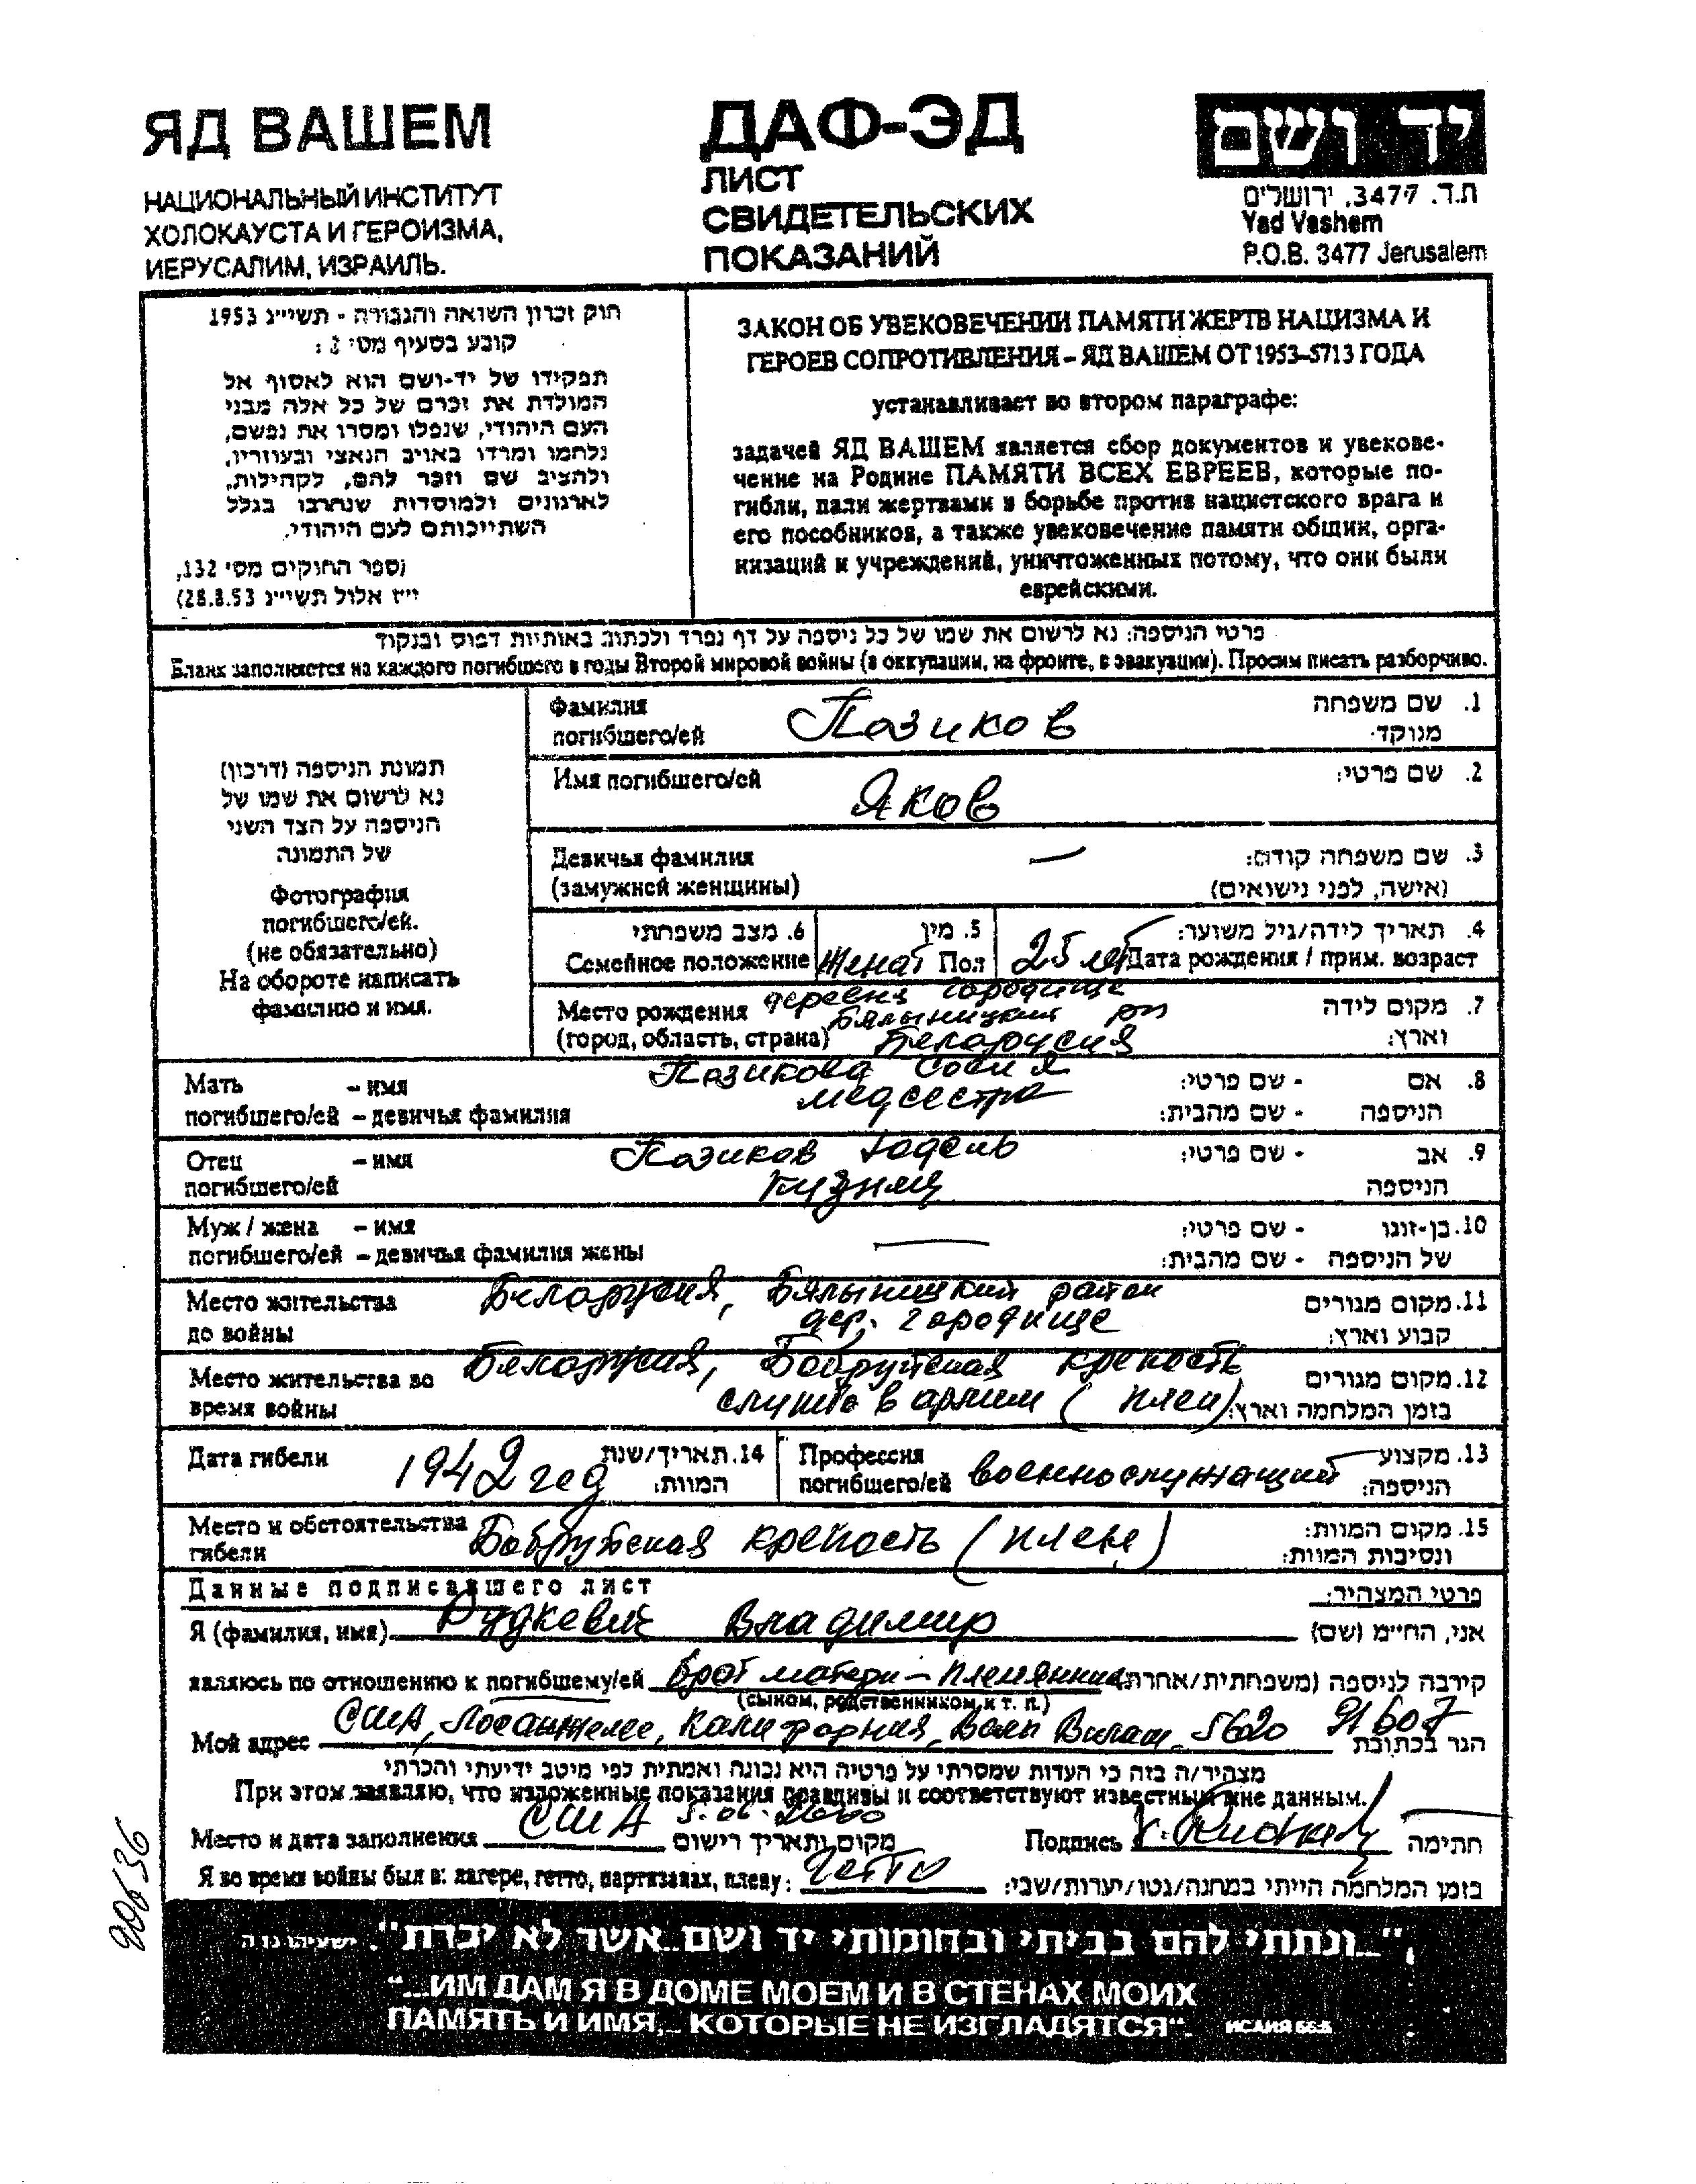 ЯД ВАШЕМ
НАЦИОНАЛЬНЫЙ ИНСТИТУТ
ХОЛОКАУСТА И ГЕРОИЗМА,
ИЕРУСАЛИМ, ИЗРАИЛЬ.
ДАФ-ЭД
ЛИСТ
СВИДЕТЕЛЬСКИХ
ПОКАЗАНИЙ
יד ושם
ת.ד. 3477, ירושלים
Yad Vashem
P.O.B. 3477 Jerusalem
חוק זכרון השואה והגבורה - תשי״ג 1953
קובע בסעיף מס׳ 2 :
תפקידו של יד-ושם הוא לאסוף אל
המולדת את זכרם של כל אלה מבני
העם היהודי, שנפלו ומסרו את נפשם,
נלחמו ומרדו באויב הנאצי ובעוזריו,
ולהציב שם וזכר להם, לקהילות,
לארגונים ולמוסדות שנחרבו בגלל
השתייכותם לעם היהודי.
(ספר החוקים מס׳ 132,
י״ז אלול תשי״ג 28.8.53)
ЗАКОН ОБ УВЕКОВЕЧЕНИИ ПАМЯТИ ЖЕРТВ НАЦИЗМА И
ГЕРОЕВ СОПРОТИВЛЕНИЯ – ЯД ВАШЕМ ОТ 1953–5713 ГОДА
устанавливает во втором параграфе:
задачей ЯД ВАШЕМ является сбор документов и увекове-
чение на Родине ПАМЯТИ ВСЕХ ЕВРЕЕВ, которые по-
гибли, пали жертвами в борьбе против нацистского врага и
его пособников, а также увековечение памяти общин, орга-
низаций и учреждений, уничтоженных потому, что они были
еврейскими.
פרטי הניספה: נא לרשום את שמו של כל ניספה על דף נפרד ולכתוב באותיות דפוס ובנקוד
Бланк заполняется на каждого погибшего в годы Второй мировой войны (в оккупации, на фронте, в эвакуации). Просим писать разборчиво.
תמונת הניספה (דרכון)
נא לרשום את שמו של
הניספה על הצד השני
של התמונה
Фотография
погибшего/ей.
(не обязательно)
На обороте написать
фамилию и имя.
Фамилия
погибшего/ей
Позиков
1. שם משפחה
מנוקד:
Имя погибшего/ей
Яков
2. שם פרטי:
Девичья фамилия
(замужней женщины)
—
3. שם משפחה קודם:
(אישה, לפני נישואים)
6. מצב משפחתי
Семейное положение
женат
5. מין
Пол
25 лет
4. תאריך לידה/גיל משוער:
Дата рождения / прим. возраст
Место рождения
(город, область, страна)
деревня Городище
Бялыницкий р-н
Белоруссия
7. מקום לידה
וארץ:
Мать – имя
погибшего/ей – девичья фамилия
Позикова Соня
медсестра
8. אם - שם פרטי:
הניספה - שם מהבית:
Отец – имя
погибшего/ей
Позиков Годель
кузнец
9. אב - שם פרטי:
הניספה
Муж / жена – имя
погибшего/ей – девичья фамилия жены
—
10. בן-זוגו - שם פרטי:
של הניספה - שם מהבית:
Место жительства
до войны
Белорусия, Бялыницкий район
дер. Городище
11. מקום מגורים
קבוע וארץ:
Место жительства во
время войны
Белорусия, Бобруйская крепость
служба в армии (плен)
12. מקום מגורים
בזמן המלחמה וארץ:
Дата гибели
1942 год
14. תאריך/שנת
המוות:
Профессия
погибшего/ей
военнослужащий
13. מקצוע
הניספה:
Место и обстоятельства
гибели
Бобруйская крепость (плен)
15. מקום המוות:
ונסיבות המוות:
Данные подписавшего лист
פרטי המצהיר:
Я (фамилия, имя) Рудкевич Владимир אני, החי״מ (שם)
являюсь по отношению к погибшему/ей брат матери – племянник קירבה לניספה (משפחתית/אחרת)
(сыном, родственником, и т. п.)
Мой адрес США, Лосанжелес, Калифорния, Вали Вилаж 5620 91607 הגר בכתובת
מצהיר/ה בזה כי העדות שמסרתי על פרטיה היא נכונה ואמתית לפי מיטב ידיעתי והכרתי
При этом заявляю, что изложенные показания правдивы и соответствуют известным мне данным.
Место и дата заполнения США 5.06.2000 מקום ותאריך רישום Подпись V. Rudkevich חתימה
Я во время войны был в: лагере, гетто, партизанах, плену: гетто בזמן המלחמה הייתי במחנה/גטו/יערות/שבי:
"...ונתתי להם בביתי ובחומותי יד ושם...אשר לא יכרת". ישעיהו נו ה
"...ИМ ДАМ Я В ДОМЕ МОЕМ И В СТЕНАХ МОИХ
ПАМЯТЬ И ИМЯ,.. КОТОРЫЕ НЕ ИЗГЛАДЯТСЯ". ИСАИЯ 56:5